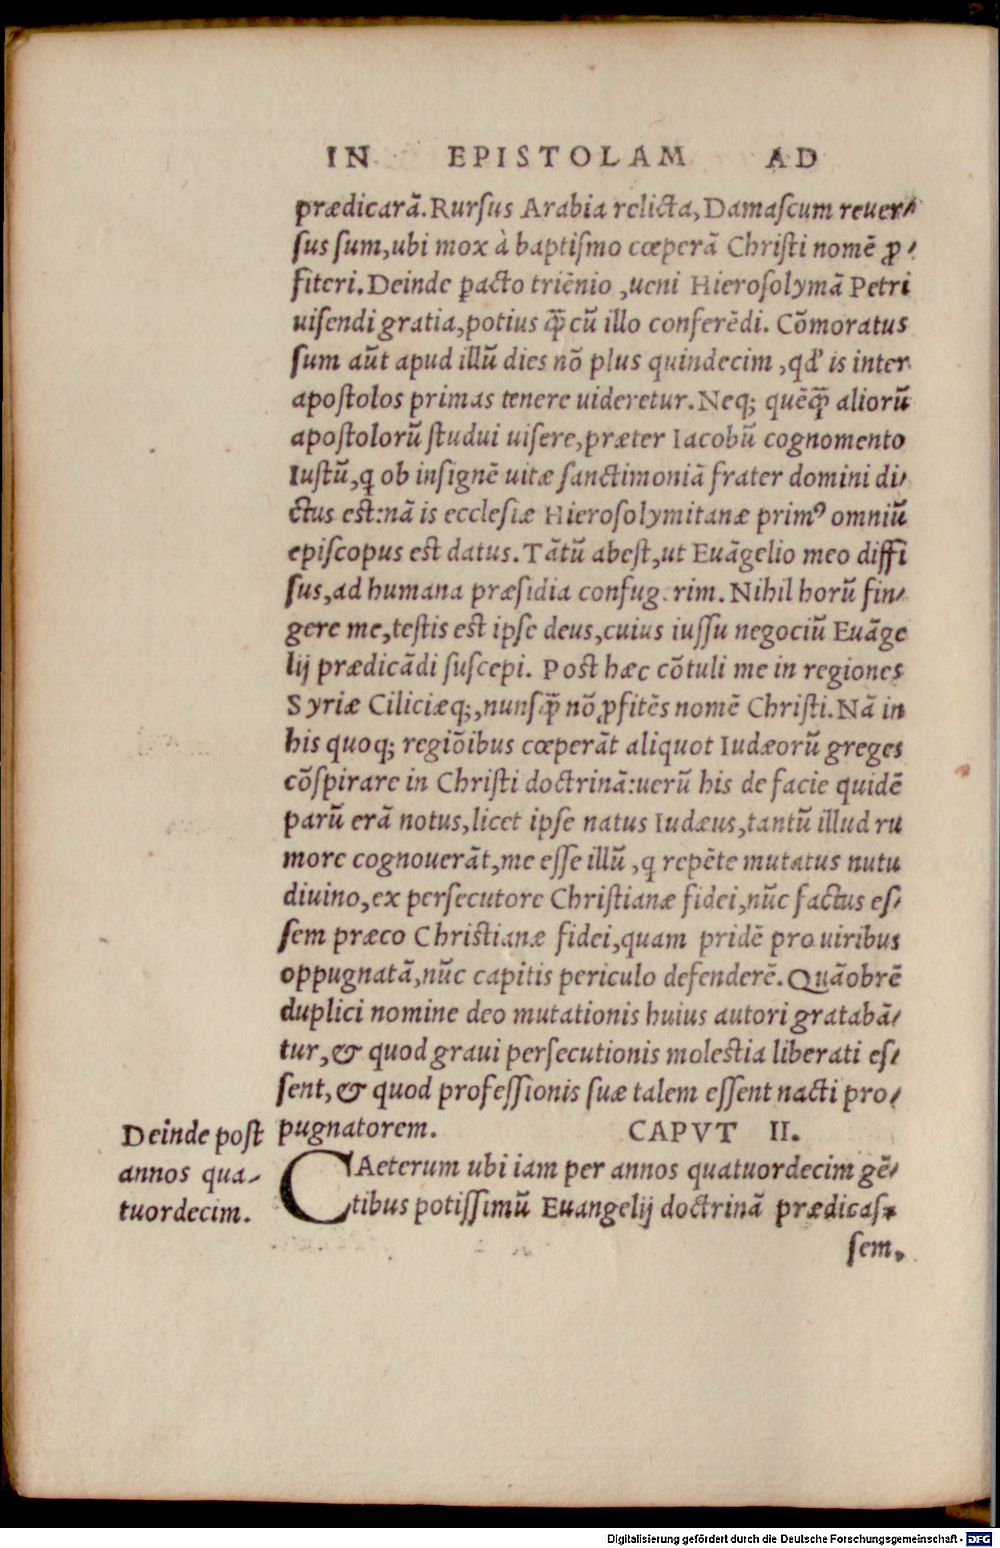 IN EPISTOLAM AD
prædicarā. Rursus Arabia relicta, Damascum reuer-
sus sum, ubi mox à baptismo cœperā Christi nomē ꝓ-
fiteri. Deinde ꝑacto triēnio, ueni Hierosolymā Petri
uisendi gratia, potius q̄ꝫ cū illo conferēdi. Cōmoratus
sum aūt apud illū dies nō plus quindecim, qd' is inter
apostolos primas tenere uideretur. Neqꝫ quēq̄ꝫ aliorū
apostolorū studui uisere, præter Iacobū cognomento
Iustū, q ob insignē uitæ sanctimoniā frater domini di-
ctus est: nā is ecclesiæ Hierosolymitanæ primꝰ omniū
episcopus est datus. Tātū abest, ut Euāgelio meo diffi
sus, ad humana præsidia confug rim. Nihil horū fin-
gere me, testis est ipse deus, cuius iussu negociū Euāge
lij prædicādi suscepi. Post hæc cōtuli me in regiones
Syriæ Ciliciæqꝫ, nunsq̄ꝫ nō ꝓfitēs nomē Christi. Nā in
his quoqꝫ regiōibus cœperāt aliquot Iudæorū greges
cōspirare in Christi doctrinā: uerū his de facie quidē
parū erā notus, licet ipse natus Iudæus, tantū illud ru
more cognouerāt, me esse illū, q repēte mutatus nutu
diuino, ex persecutore Christianæ fidei, nūc factus es-
sem præco Christianæ fidei, quam pridē pro uiribus
oppugnatā, nūc capitis periculo defenderē. Quāobrē
duplici nomine deo mutationis huius autori gratabā-
tur, & quod graui persecutionis molestia liberati es-
sent, & quod professionis suæ talem essent nacti pro-
pugnatorem. CAPVT II.
Deinde post
annos qua-
tuordecim.
CAeterum ubi iam per annos quatuordecim gē-
tibus potissimū Euangelij doctrinā prædicas-
sem,
Digitalisierung gefördert durch die Deutsche Forschungsgemeinschaft - DFG